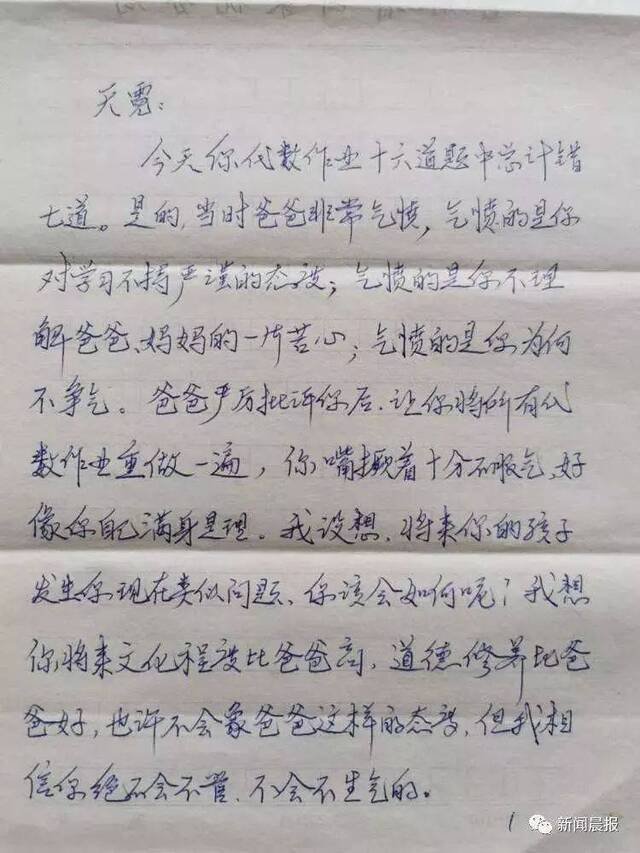 天霓：
今天你代数作业十六道题中总计错
七道。是的,当时爸爸非常气愤，气愤的是你
对学习不持严谨的态度；气愤的是你不理
解爸爸、妈妈的一片苦心；气愤的是你为何
不争气。爸爸严厉批评你后,让你将所有代
数作业重做一遍，你嘴撅着十分不服气、好
像你自己满身是理。我设想,将来你的孩子
发生你现在类似问题、你该会如何呢？我想
你将来文化程度比爸爸高,道德修养比爸
爸好，也许不会象爸爸这样的态度,但我相
信你绝不会不管、不会不生气的。
1
新闻晨报